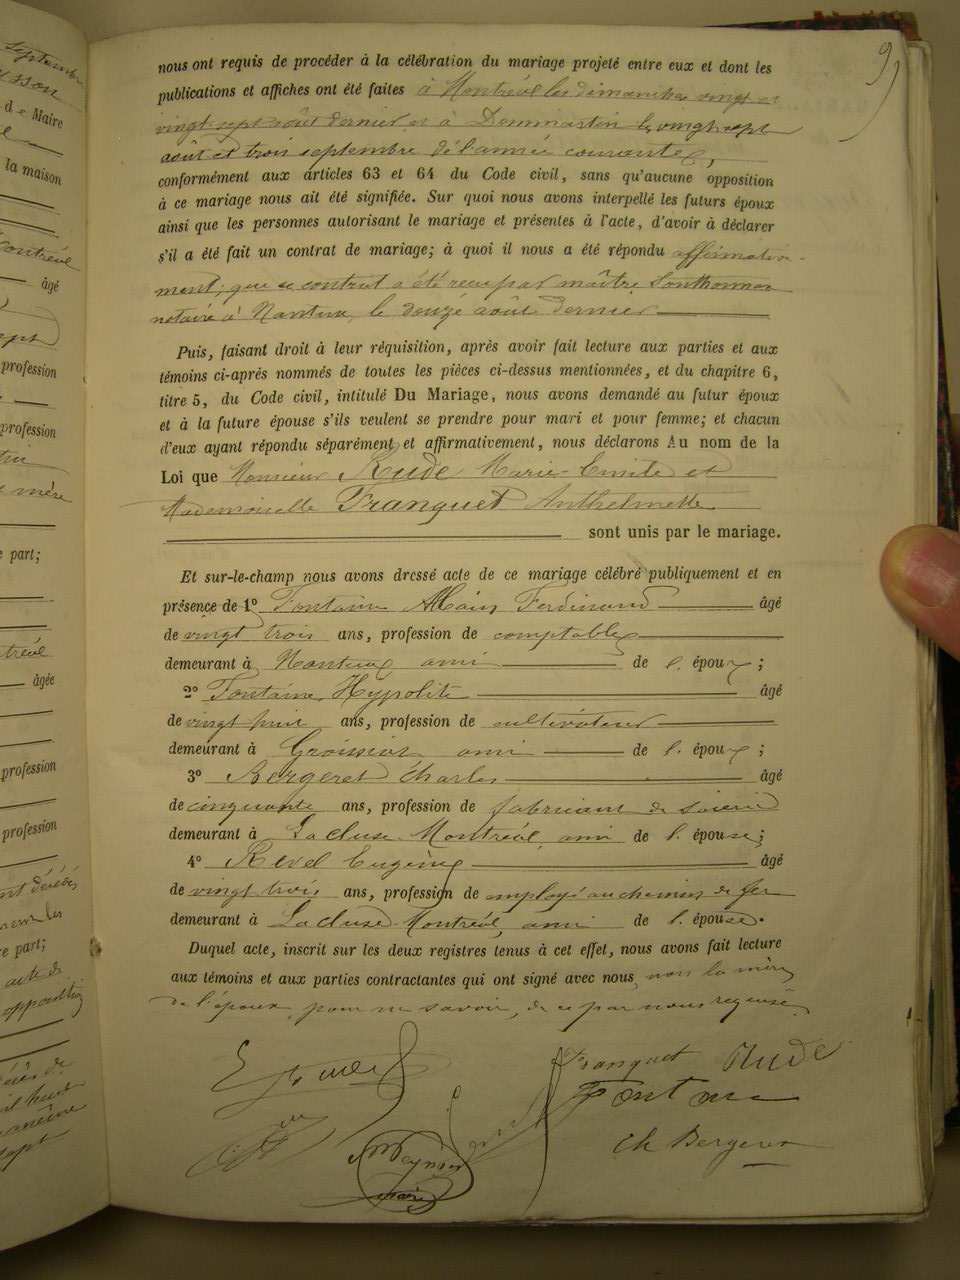 septembre
d e Maire
la maison
Montréal
âgé
sept
profession
profession
mère
e part;
âgée
profession
profession
re part;
acte de
opposition
9
nous ont requis de procéder à la célébration du mariage projeté entre eux et dont les
publications et affiches ont été faites à Montréal les dimanches vingt et
vingt sept août dernier et à Dommartin les vingt sept
août et trois septembre de l'année courante,
conformément aux articles 63 et 64 du Code civil, sans qu'aucune opposition
à ce mariage nous ait été signifiée. Sur quoi nous avons interpellé les futurs époux
ainsi que les personnes autorisant le mariage et présentes à l'acte, d'avoir à déclarer
s'il a été fait un contrat de mariage; à quoi il nous a été répondu affirmative-
ment, que ce contrat a été reçu par maître Sonthonnax
notaire à Nantua, le douze août dernier
Puis, faisant droit à leur réquisition, après avoir fait lecture aux parties et aux
témoins ci-après nommés de toutes les pièces ci-dessus mentionnées, et du chapitre 6,
titre 5, du Code civil, intitulé Du Mariage, nous avons demandé au futur époux
et à la future épouse s'ils veulent se prendre pour mari et pour femme; et chacun
d'eux ayant répondu séparément et affirmativement, nous déclarons Au nom de la
Loi que Monsieur Rude Marie-Emile et
Mademoiselle Franquet Anthelmette
sont unis par le mariage.
Et sur-le-champ nous avons dressé acte de ce mariage célébré publiquement et en
présence de 1º Fontaine Alain Ferdinand âgé
de vingt trois ans, profession de comptable
demeurant à Nantua ami de l'époux;
2º Fontaine Hypolite âgé
de vingt huit ans, profession de cultivateur
demeurant à Groissiat ami de l'époux;
3º Bergeret Charles âgé
de cinquante ans, profession de fabricant de soierie
demeurant à La cluse Montréal, ami de l'épouse;
4º Revel Eugène âgé
de vingt trois ans, profession de employé au chemin de fer
demeurant à La cluse Montréal, ami de l'épouse.
Duquel acte, inscrit sur les deux registres tenus à cet effet, nous avons fait lecture
aux témoins et aux parties contractantes qui ont signé avec nous, non la mère
de l'époux, pour ne savoir, de ce par nous requise.
E Rude Franquet Rude
Fontaine
Ch Bergeret
maire